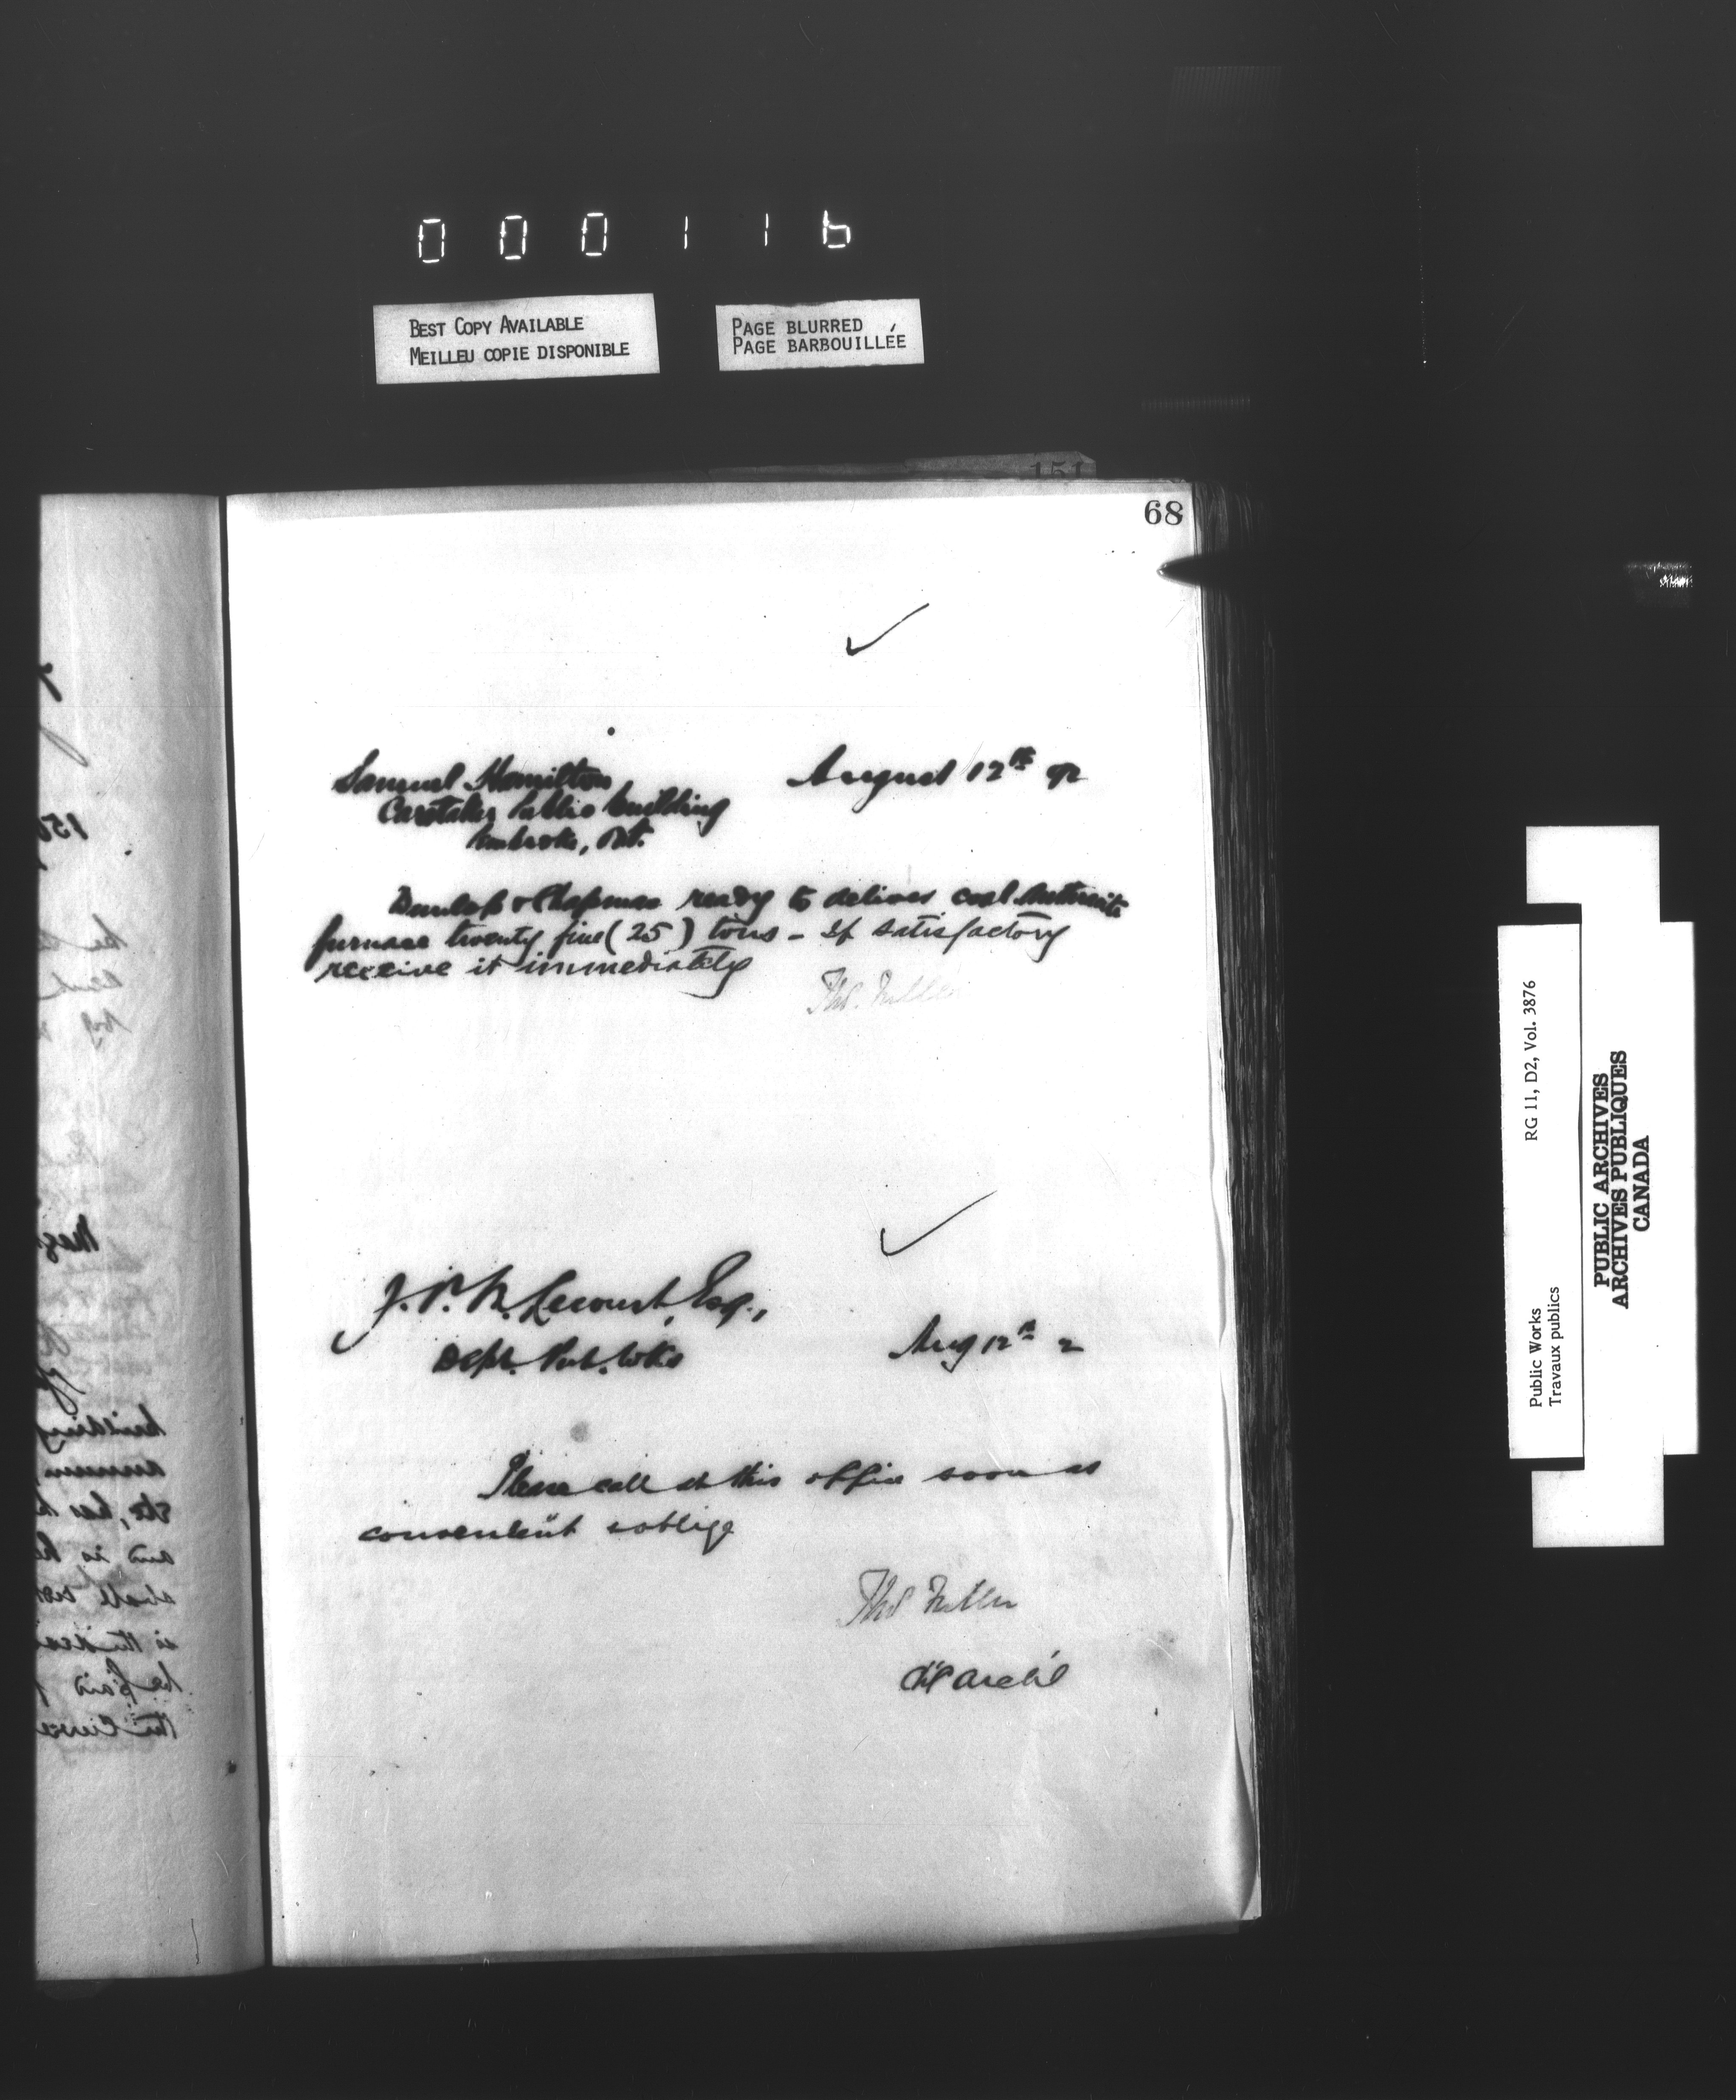 000116
BEST COPY AVAILABLE
MEILLEU COPIE DISPONIBLE
PAGE BLURRED
PAGE BARBOUILLÉE
151
68
Samuel Hamilton
August 12th 92
Caretaker Public building
Pembroke, Ont.
Dunlop & Chapman ready to deliver coal Antracite
furnace twenty five (25) tons - If satisfactory
receive it immediately
Thos. Fuller
J. P. M. Lecourt, Esq.,
Dept. Pub. Wks
Aug 12th 2
Please call at this office soon as
convenient & oblige
Thos Fuller
Ch. Archt
Public Works
Travaux publics
RG 11, D2, Vol. 3876
PUBLIC ARCHIVES
ARCHIVES PUBLIQUES
CANADA